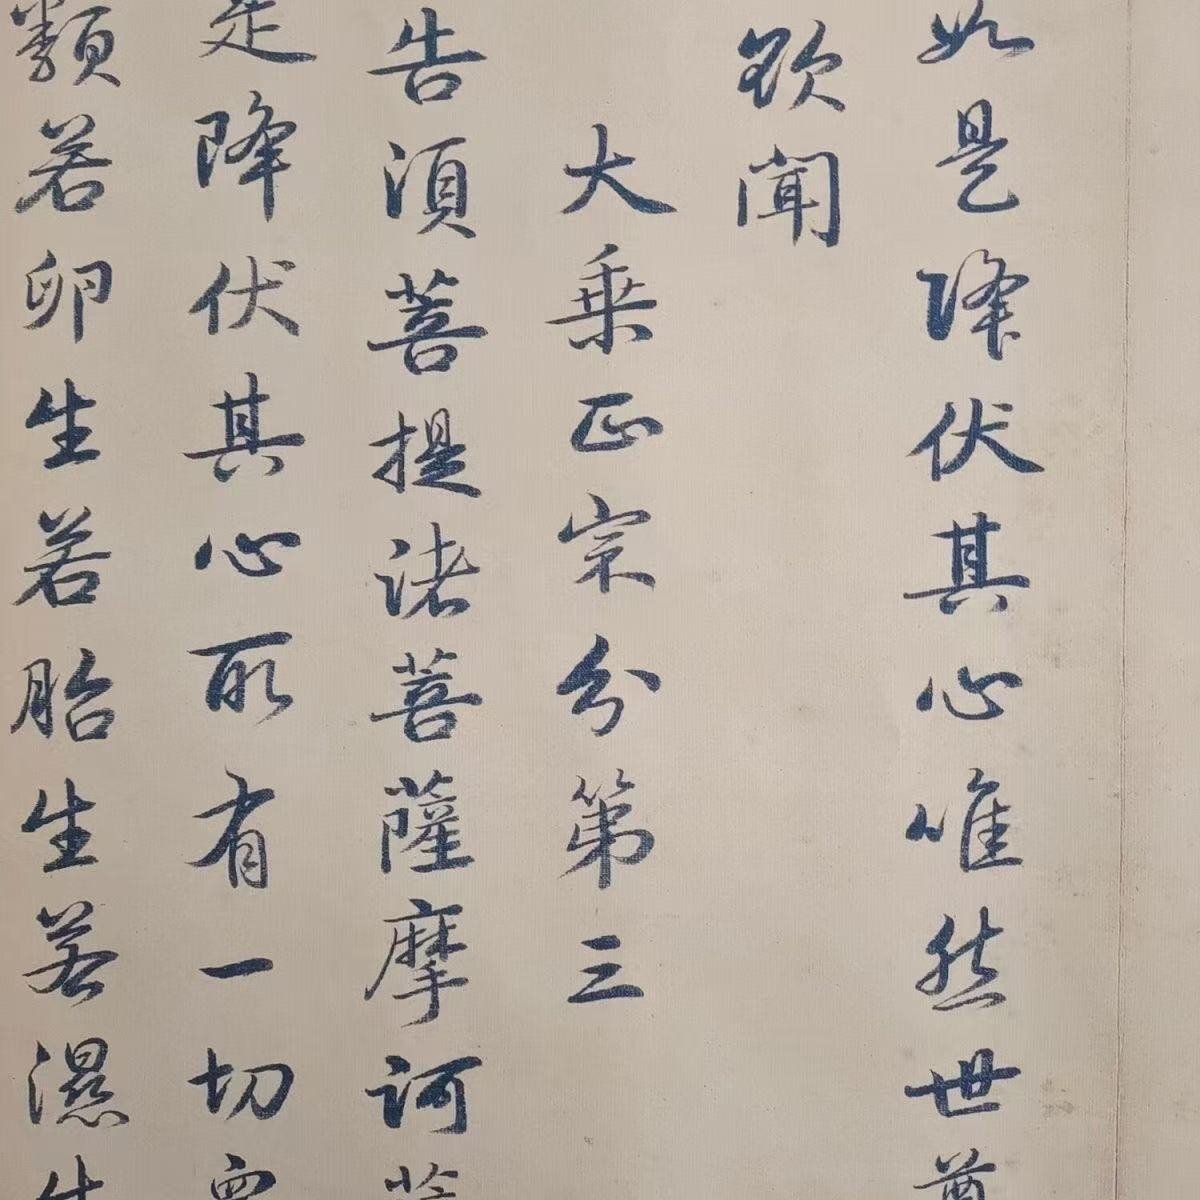 如是降伏其心唯然世尊
欲聞
大乗正宗分第三
告須菩提諸菩薩摩訶薩
是降伏其心所有一切衆
類若卵生若胎生若濕生